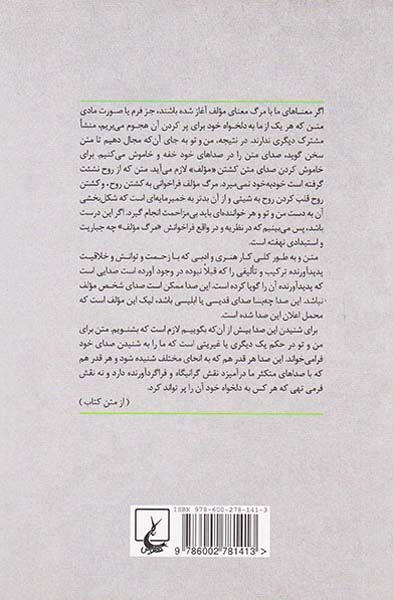 اگر معناهای ما با مرگ معنای مؤلف آغاز شده باشند، جز فرم یا صورت مادی
متـن که هر یک از ما به دلخواه خود برای پر کردن آن هجوم می‌بریم، منشأ
مشترک دیگری ندارند. در نتیجه، من و تو به جای آن‌که مجال دهیم تا متن
سخن گوید، صدای متن را در صداهای خود خفه و خاموش می‌کنیم. برای
خاموش کردن صدای متن کشتن «مؤلف» لازم می‌آید. متن که از روح نشئت
گرفته است خودبه‌خود نمی‌میرد. مرگ مؤلف فراخوانی به کشتن روح، و کشتن
روح قلب کردن روح به شیئی و از آن بدتر به خمیرمایه‌ای است که شکل‌بخشی
آن به دست من و تو و هر خواننده‌ای باید بی‌مزاحمت انجام گیرد. اگر این درست
باشد، پس می‌بینیم که در نظریه و در واقع فراخوانش «مرگ مؤلف» چه جباریت
و استبدادی نهفته است.
متن و به طور کلی کار هنری و ادبی که با زحمت و توانش و خلاقیت
پدیدآورنده ترکیب و تألیفی را که قبلاً نبوده در وجود آورده است صدایی است
که پدیدآورنده آن را گویا کرده است. این صدا ممکن است صدای شخص مؤلف
نباشد. این صدا چه‌بسا صدای قدیسی یا ابلیسی باشد، لیک این مؤلف است که
محمل اعلان این صدا شده است.
برای شنیدن این صدا بیش از آن‌که بگوییم لازم است که بشنویم. متن برای
من و تو در حکم یک دیگری یا غیریتی است که ما را به شنیدن صدای خود
فرامی‌خواند. این صدا هر قدر هم که به انحای مختلف شنیده شود و هر قدر هم
که با صداهای متکثر ما درآمیزد نقش گرانیگاه و فراگردآورنده دارد و نه نقش
فرمی تهی که هر کس به دلخواه خود آن را پر تواند کرد.
( از متن کتاب )
ISBN 978-600-278-141-3
9 786002 781413>
ققنوس